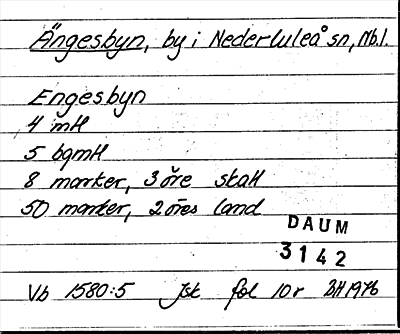 Ängesbyn, by i Nederluleå sn, Nb.l.
Engesbyn
4 mH
5 bgmH
8 marker, 3 öre skatt
50 marker, 2 öres land
DAUM
3142
Vb 1580:5 Jsk fol 10 r BH 1976